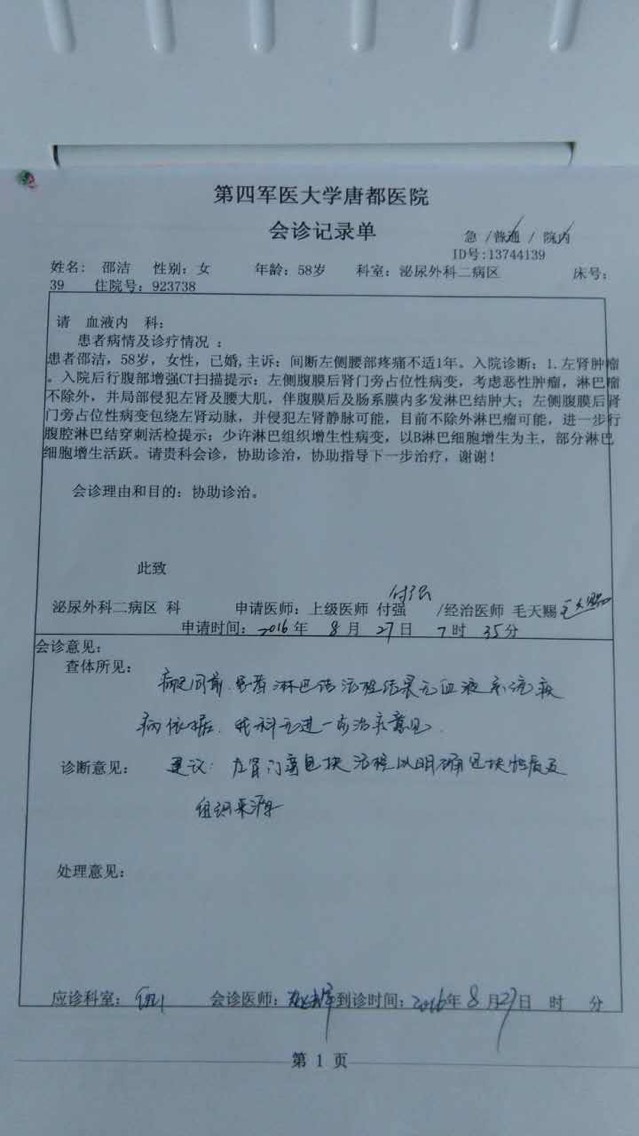 第四军医大学唐都医院
会诊记录单
急 /普通 / 院内
ID号:13744139
姓名: 邵洁 性别: 女 年龄: 58岁 科室: 泌尿外科二病区 床号:
39 住院号: 923738
请 血液内 科:
患者病情及诊疗情况 :
患者邵洁, 58岁, 女性, 已婚,主诉: 间断左侧腰部疼痛不适1年。入院诊断: 1.左肾肿瘤
。入院后行腹部增强CT扫描提示: 左侧腹膜后肾门旁占位性病变, 考虑恶性肿瘤, 淋巴瘤
不除外, 并局部侵犯左肾及腰大肌, 伴腹膜后及肠系膜内多发淋巴结肿大; 左侧腹膜后肾
门旁占位性病变包绕左肾动脉, 并侵犯左肾静脉可能, 目前不除外淋巴瘤可能, 进一步行
腹腔淋巴结穿刺活检提示: 少许淋巴组织增生性病变, 以B淋巴细胞增生为主, 部分淋巴
细胞增生活跃。请贵科会诊, 协助诊治, 协助指导下一步治疗, 谢谢!
会诊理由和目的: 协助诊治。
此致
付强
泌尿外科二病区 科 申请医师: 上级医师 付强 /经治医师 毛天赐 毛天赐
申请时间: 2016年 8 月 27日 7 时 35分
会诊意见:
查体所见: 病史同前,患者淋巴结活检结果无血液系统疾
病依据,我科无进一步治疗意见。
诊断意见: 建议: 左肾门旁包块活检以明确包块性质及
组织来源
处理意见:
应诊科室: 会诊医师: 到诊时间: 2016年 8 月27日 时 分
第 1 页